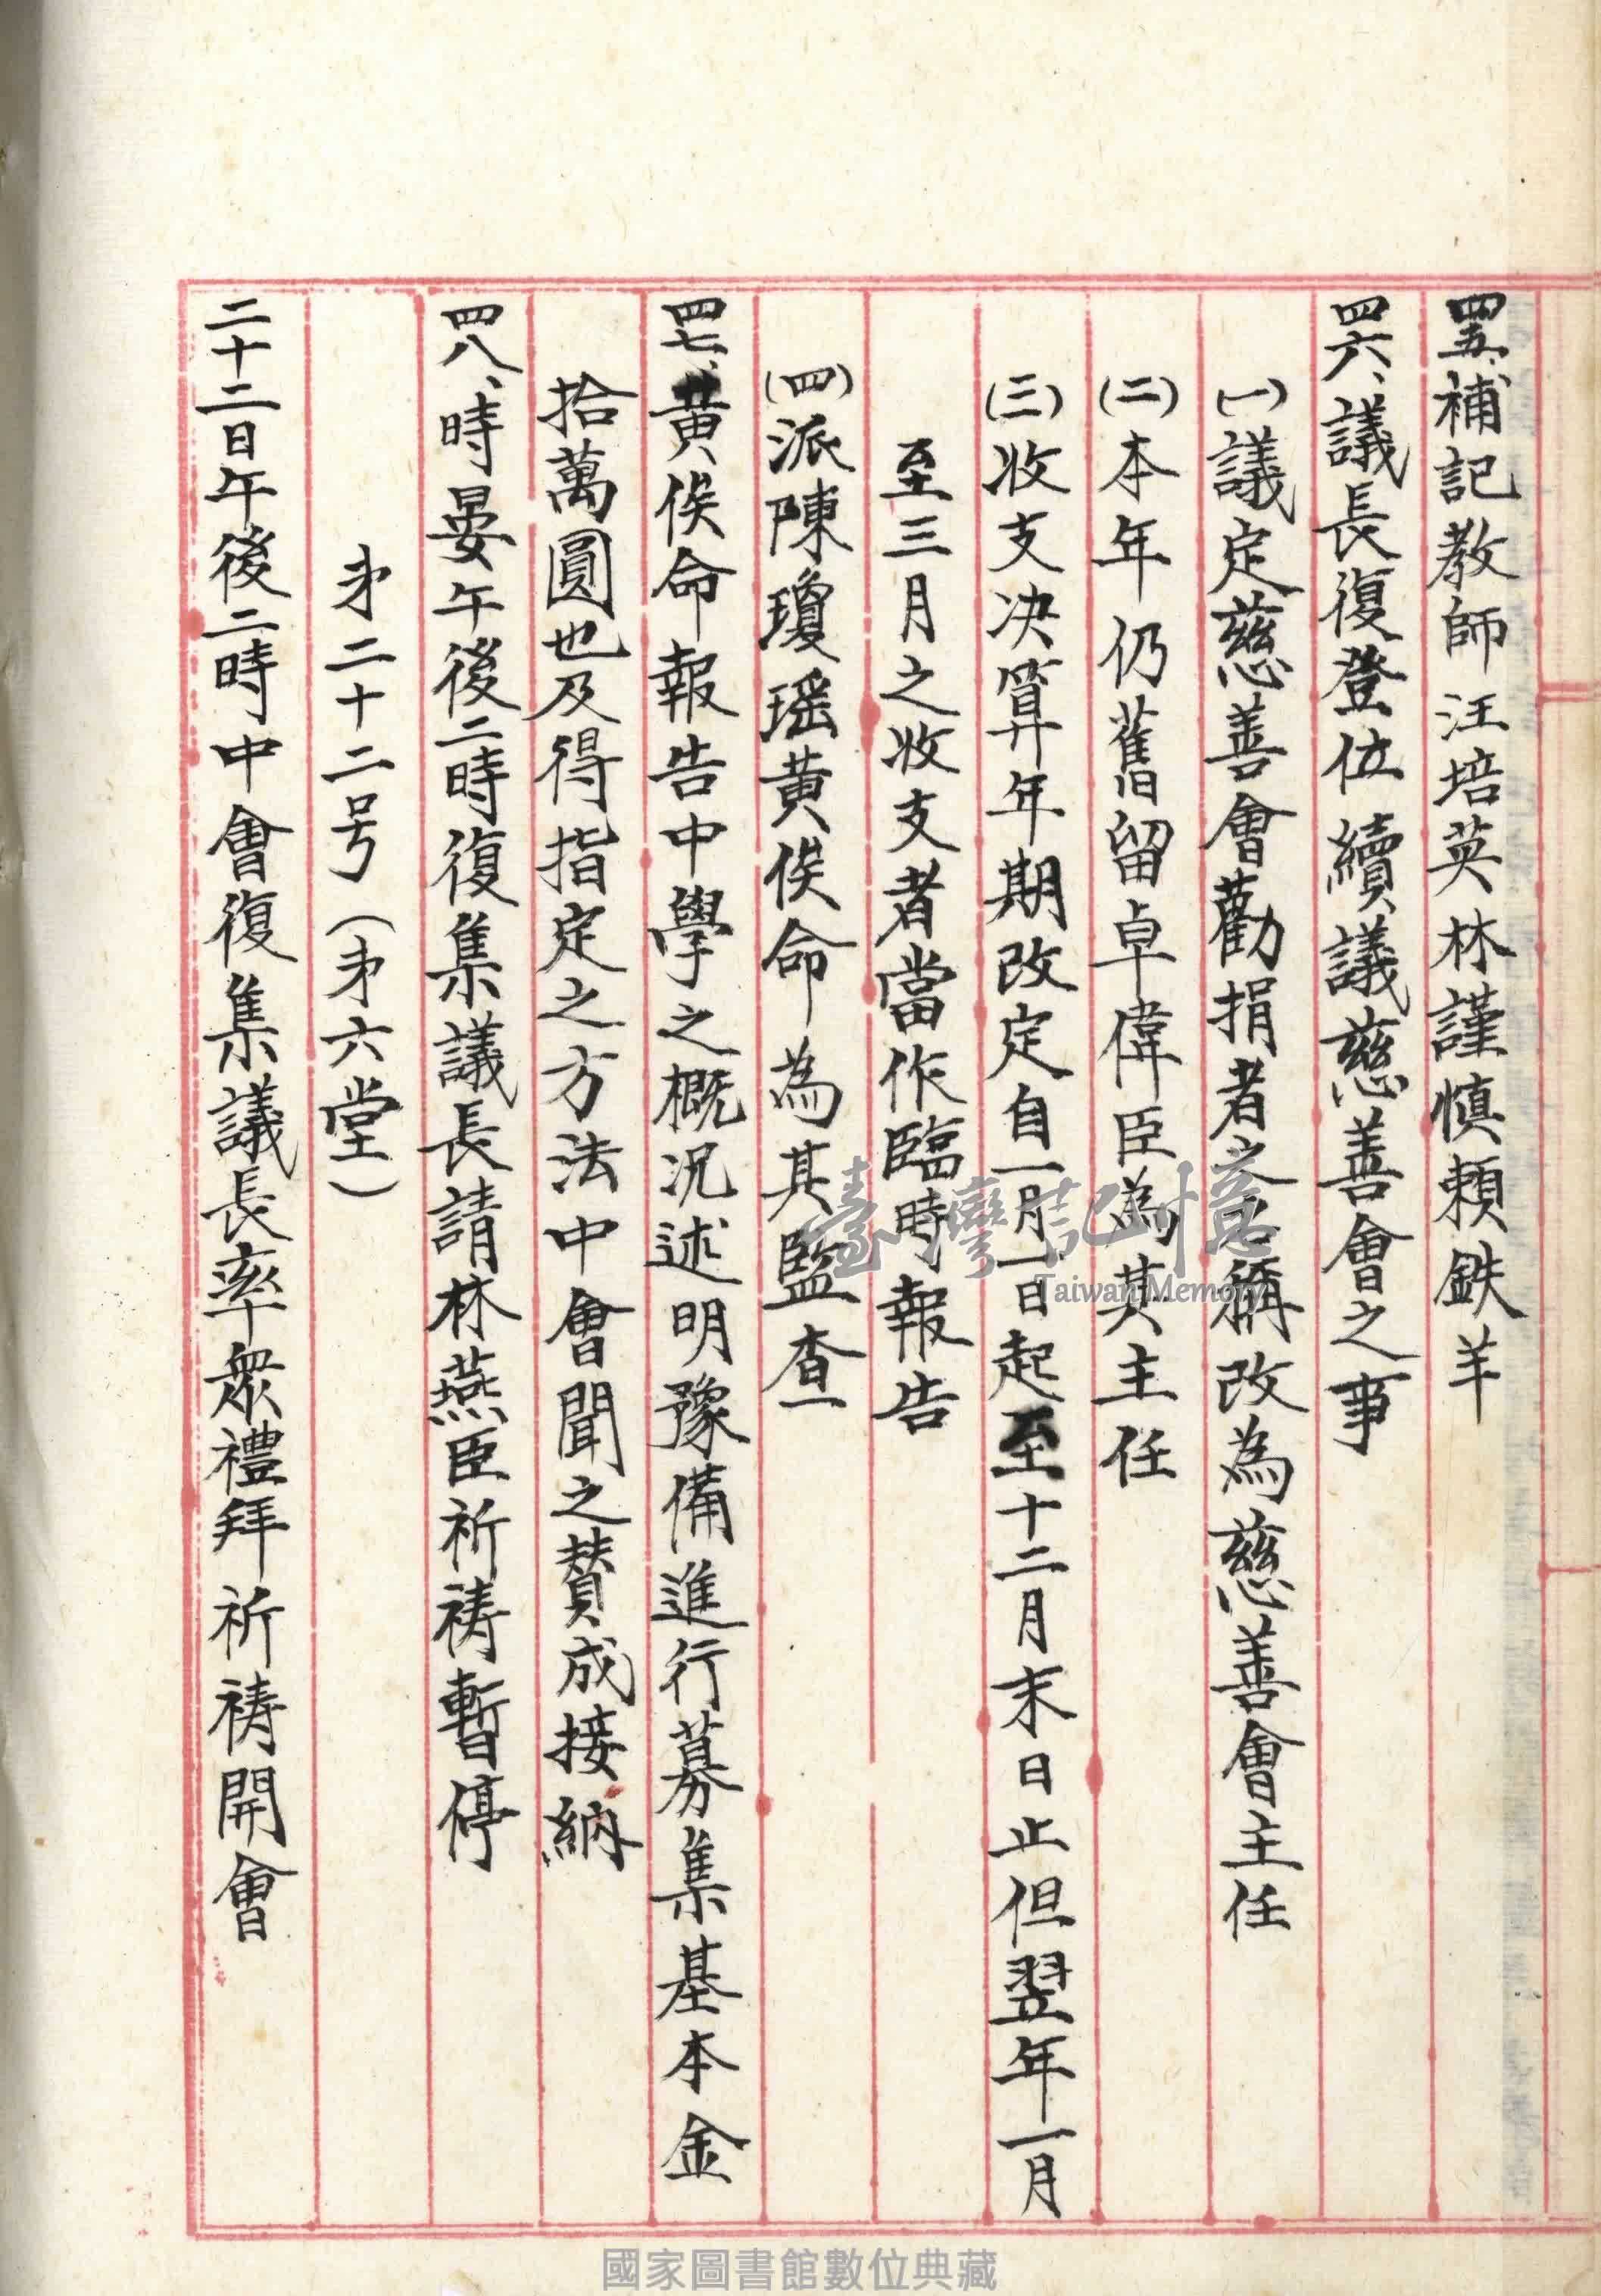 四五、補記教師汪培英林謹慎賴鉄羊
四六、議長復登位續議慈善會之事
(一)議定慈善會勸捐者之名稱改為慈善會主任
(二)本年仍舊留卓偉臣為其主任
(三)收支决算年期改定自一月一日起至十二月末日止但翌年一月
至三月之收支者當作臨時報告
(四)派陳瓊瑶黄俟命為其監查
四七、黄俟命報告中學之概況述明豫備進行募集基本金
拾萬圓也及得指定之方法中會聞之賛成接納
四八、時晏午後二時復集議長請林燕臣祈祷暫停
苐二十二号(苐六堂)
二十二日午後二時中會復集議長率衆禮拜祈祷開會
臺灣記憶
Taiwan Memory
國家圖書館數位典藏